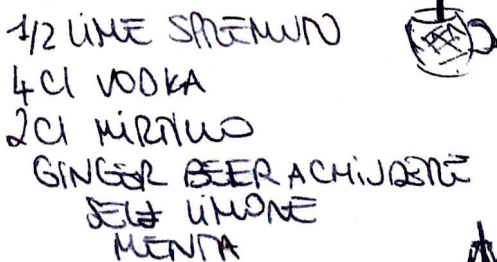 1/2 LIME SPREMUTO
4 Cl VODKA
2 Cl MIRTILLO
GINGER BEER A CHIUDERE
SELZ LIMONE
MENTA